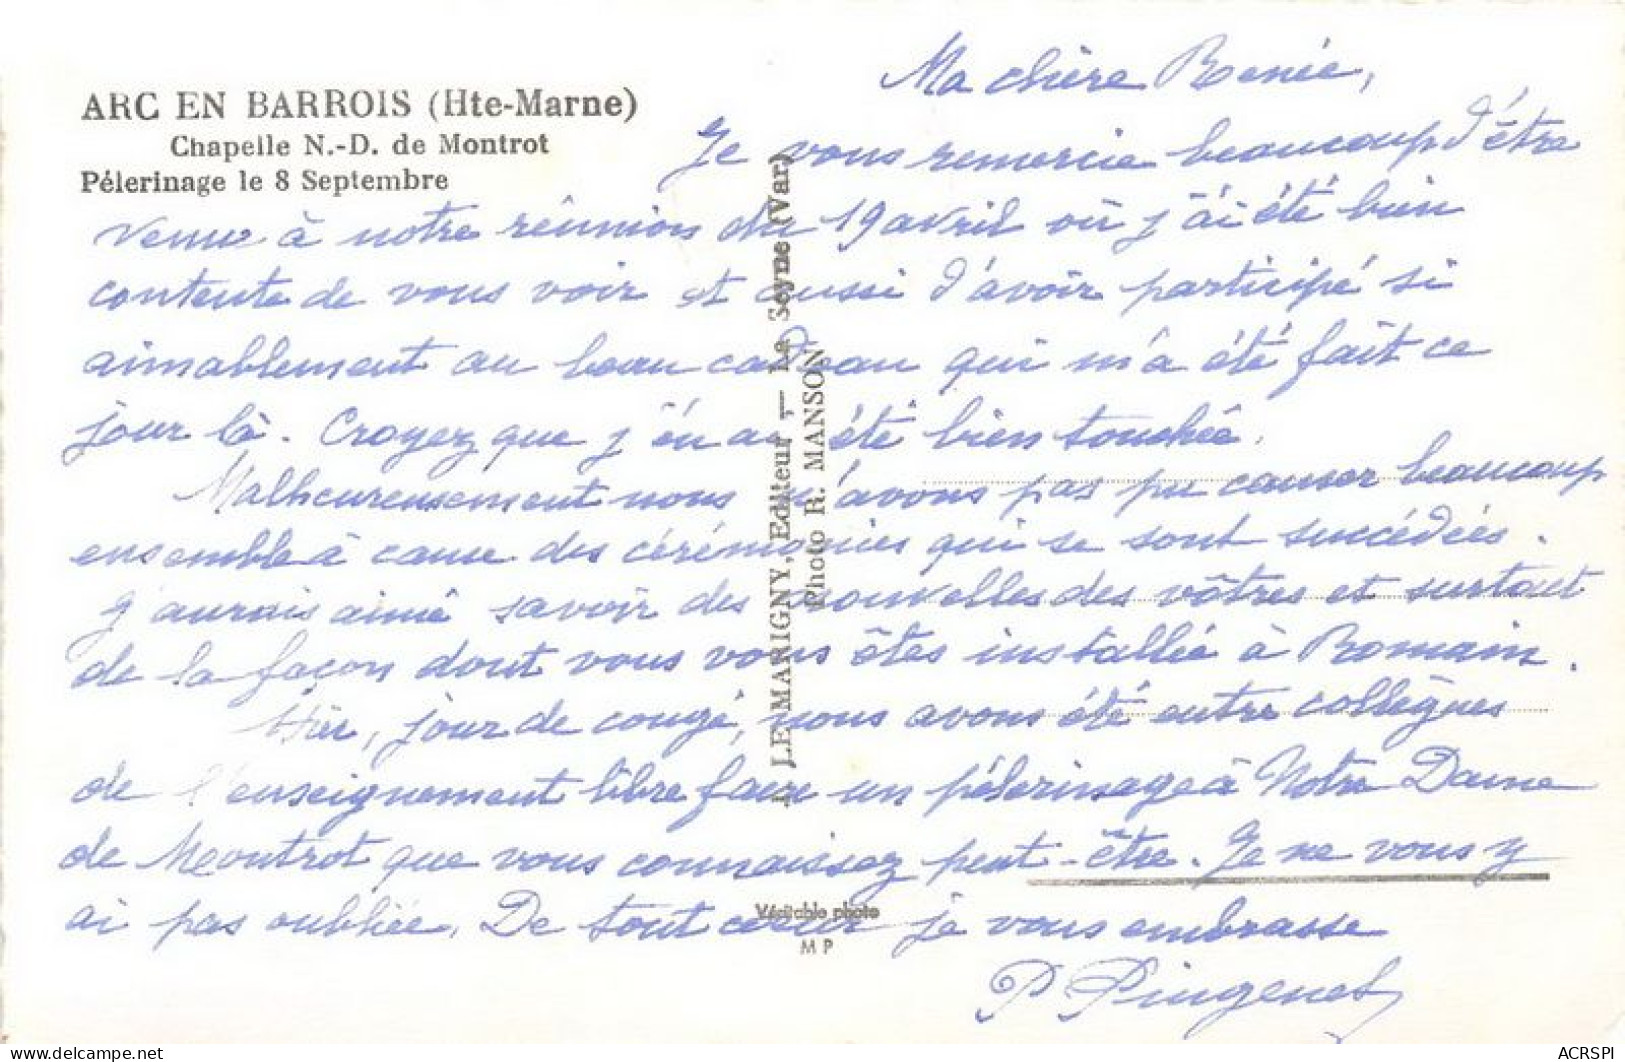 ARC EN BARROIS (Hte-Marne)
Chapelle N.-D. de Montrot
Pélerinage le 8 Septembre
Ma chère Renée,
Je vous remercie beaucoup d'être
venue à notre réunion du 19 avril où j'ai été bien
contente de vous voir et aussi d'avoir participé si
aimablement au beau cadeau qui m'a été fait ce
jour là. Croyez que j'en ai été bien touchée.
Malheureusement nous n'avons pas pu causer beaucoup
ensemble à cause des cérémonies qui se sont succédées.
J'aurais aimé savoir des nouvelles des vôtres et surtout
de la façon dont vous vous êtes installée à Romain.
Hier, jour de congé, nous avons été entre collègues
de l'enseignement libre faire un pélerinage à Notre Dame
de Montrot que vous connaissez peut-être. Je ne vous y
ai pas oubliée. De tout coeur je vous embrasse
P. Pingenet
LEMARIGNY, Editeur — La Seyne (Var)
Photo R. MANSON
Véritable photo
M P
ACRSPI